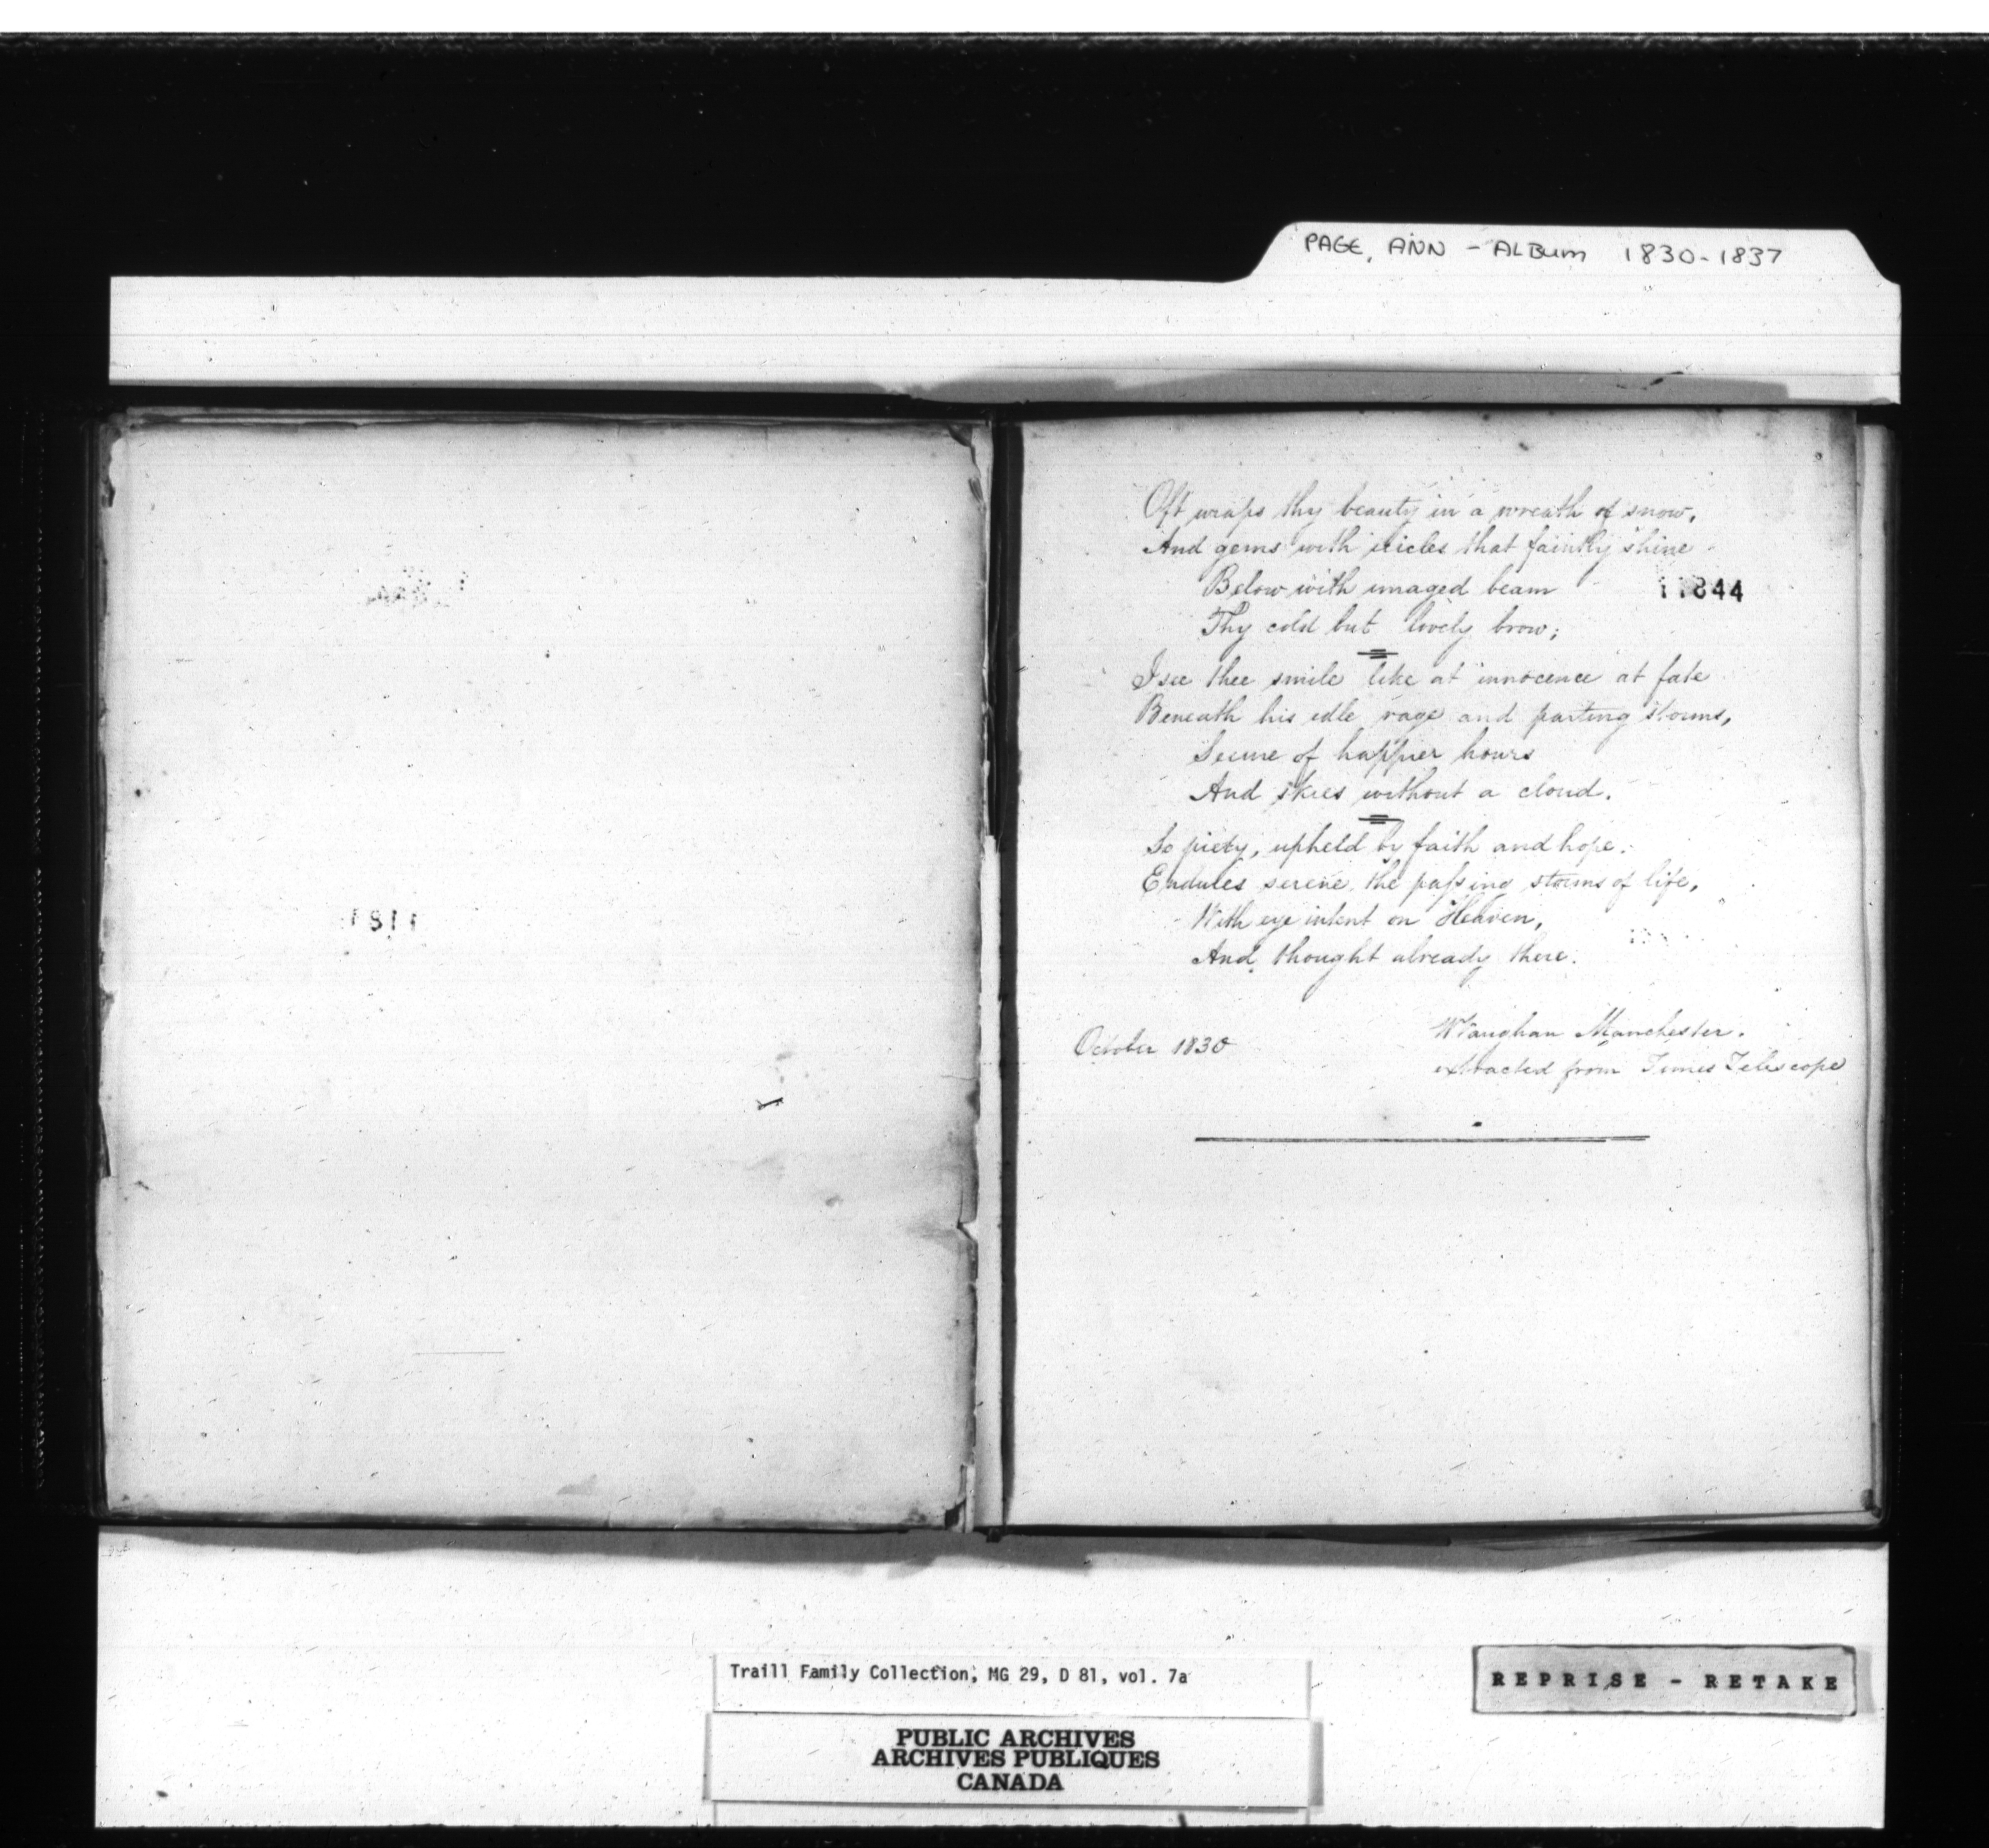 PAGE, ANN - ALBUM 1830-1837
Oft wraps thy beauty in a wreath of snow,
And gems with icicles that faintly shine
Below with imaged beam
11844
Thy cold but lovely brow;
I see thee smile like at innocence at fate
Beneath his idle rage and parting storms,
Secure of happier hours
And skies without a cloud.
So piety, upheld by faith and hope.
Endures serene, the passing storms of life,
With eye intent on Heaven,
And thought already there.
1811
October 1830
W Vaughan Manchester.
extracted from Times Telescope
Traill Family Collection, MG 29, D 81, vol. 7a
REPRISE - RETAKE
PUBLIC ARCHIVES
ARCHIVES PUBLIQUES
CANADA